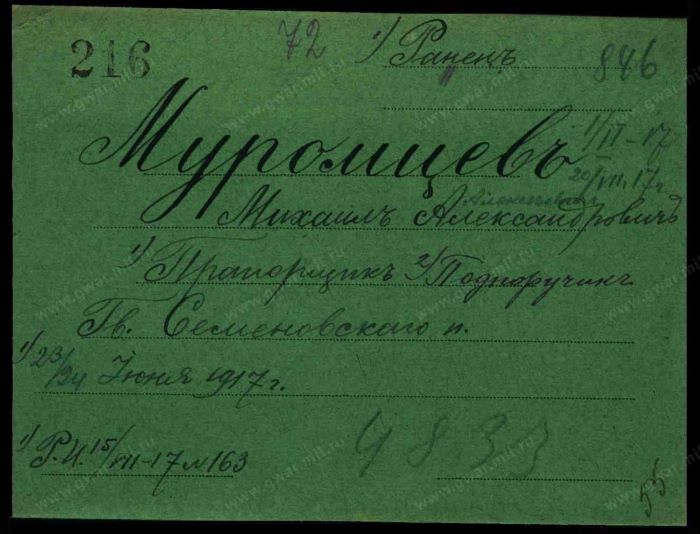 216 72 1) Раненъ 846
Муромцевъ 1/II-17
20/VII.17г.
Алексѣевичъ
Михаилъ Александровичъ
1) Прапорщикъ 2) Подпоручикъ
Гв. Семеновскаго п.
1) 23/24 Июня 1917г.
1) Р.И. 15/VII-17 №163
55